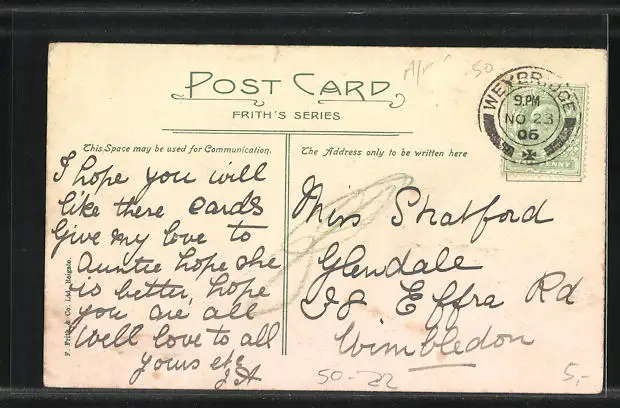 POST CARD
FRITH'S SERIES
This Space may be used for Communication.
The Address only to be written here
WEYBRIDGE
9.PM
NO 23
06
I hope you will
like there cards
Give my love to
Auntie hope she
is better, hope
you are all
Well love to all
yours etc
J A
Miss Shatford
Glendale
28 Effra Rd
Wimbledon
F. Frith & Co. Ltd., Reigate.
50-22
5,-
.50